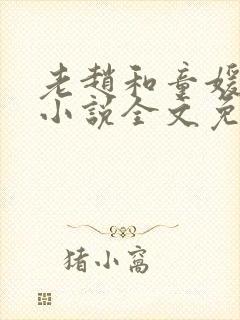 老趙和童媛
小說全文免
猪小窝